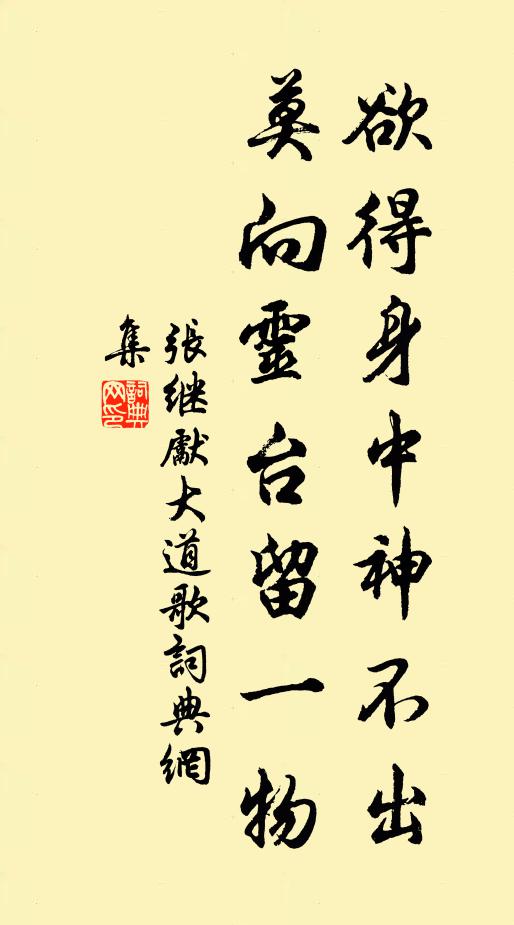 欲得身中神不出
莫向靈台留一物
張继獻大道歌詞典網
集
詞典網印